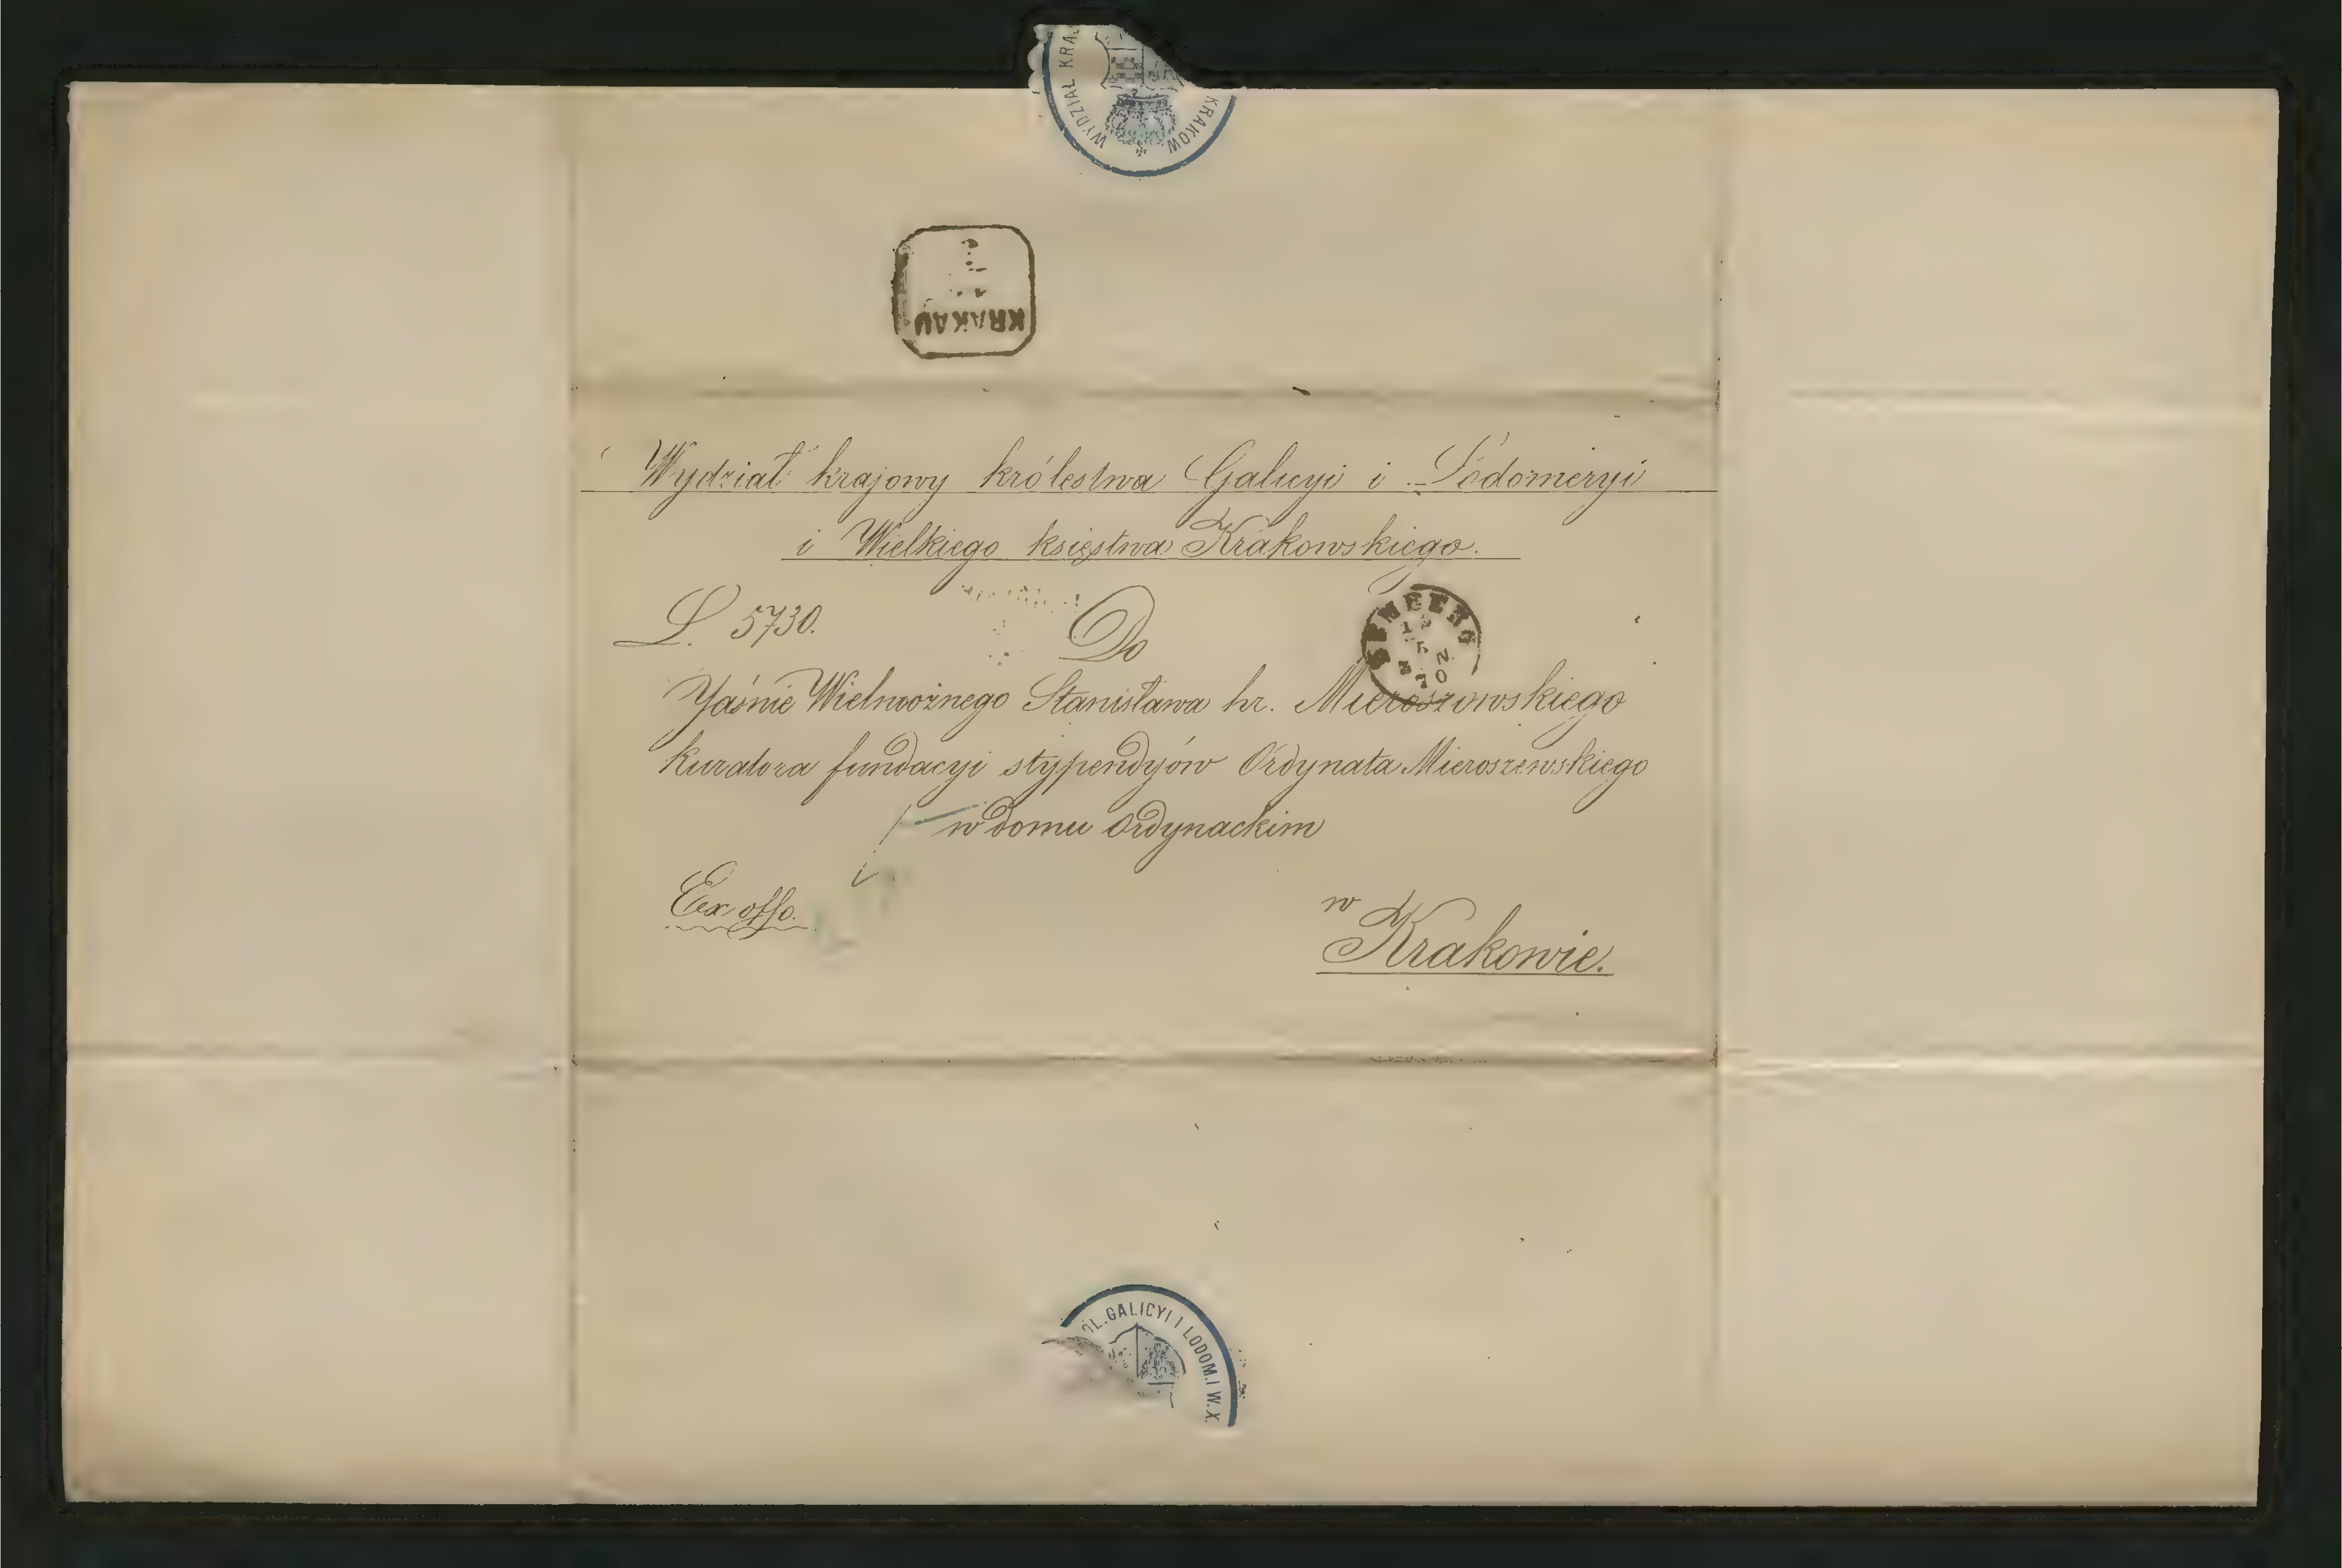 WYDZIAŁ KRAJ
KRAKOW
KRAKAU
Wydział krajowy królestwa Galicyi i Lodomeryi
i Wielkiego księstwa Krakowskiego.
L. 5730.
Do
LEMBERG
5
70
Jaśnie Wielmożnego Stanisława hr. Mieroszowskiego
kuratora fundacyi stypendyów Ordynata Mieroszewskiego
w domu Ordynackim
Ex offo.
w
Krakowie.
ÓL. GALICYI I LODOM. I W. X.